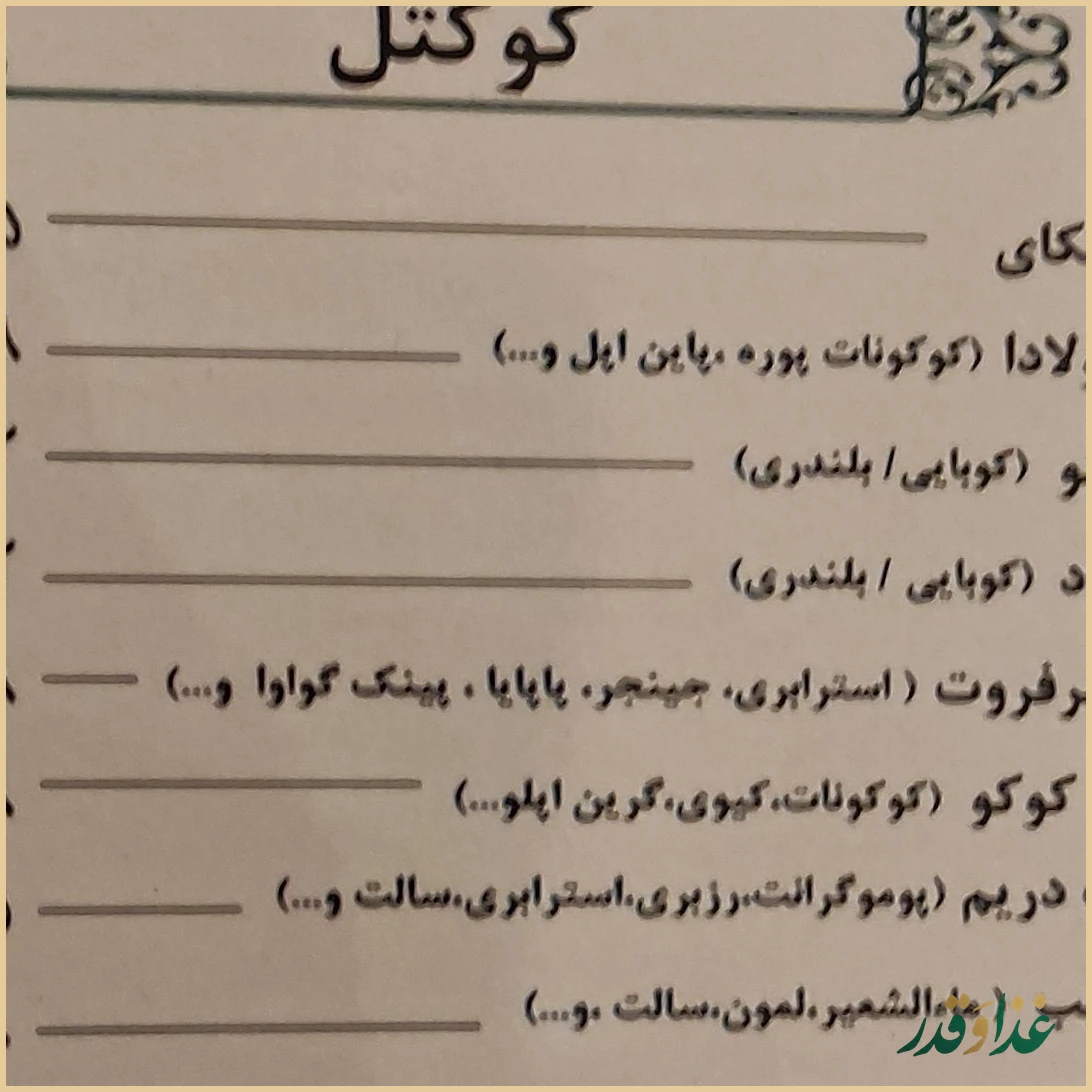 کوکتل
(کوکونات پوره ،پاین اپل و...)
(کوبایی/ بلندری)
(کوبایی / بلندری)
فروت ( استرابری، جینجر، پاپایا ، پینک گواوا و...)
کوکو (کوکونات،کیوی،گرین اپلو...)
دریم (پوموگرانت،رزبری،استرابری،سالت و...)
(ماءالشعیر،لمون،سالت ،و...)
غذا و قدر